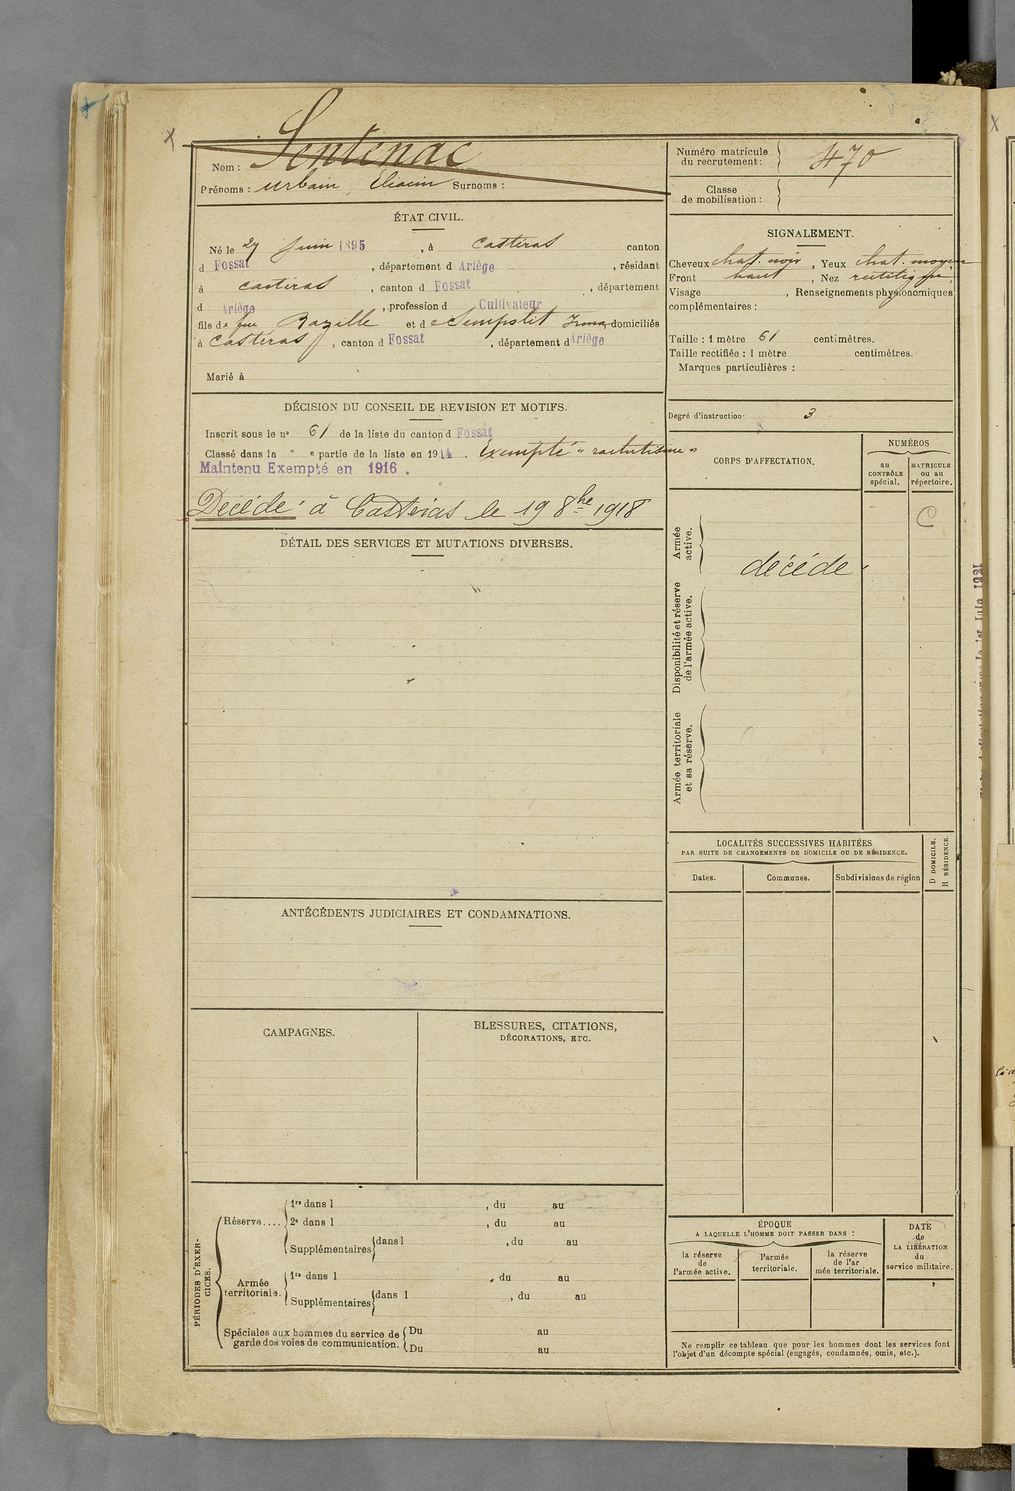 Nom : Sentenac
Prénoms : Urbain, Eliacin Surnoms :
Numéro matricule
du recrutement : 470
Classe
de mobilisation :
ÉTAT CIVIL.
Né le 27 Juin 1895, à Castéras canton
d Fossat, département d Ariège, résidant
à Castéras, canton d Fossat, département
d Ariège, profession d Cultivateur
fils de feu Bazille et de Sempstit Irma domiciliés
à Castéras, canton d Fossat, département d Ariège
Marié à
SIGNALEMENT.
Cheveux chat. noir, Yeux chat. moyen
Front haut, Nez rectiligne,
Visage , Renseignements physionomiques
complémentaires :
Taille : 1 mètre 61 centimètres.
Taille rectifiée : 1 mètre centimètres.
Marques particulières :
Degré d'instruction : 3
DÉCISION DU CONSEIL DE REVISION ET MOTIFS.
Inscrit sous le n° 61 de la liste du canton d Fossat
Classé dans la " e partie de la liste en 1914. Exempté "rachitisme"
Maintenu Exempté en 1916.
Décédé à Castéras le 19 8bre 1918
CORPS D'AFFECTATION.
NUMÉROS
au
CONTRÔLE
spécial.
MATRICULE
ou au
répertoire.
C
Armée
active.
décédé
Disponibilité et réserve
de l'armée active.
Armée territoriale
et sa réserve.
DÉTAIL DES SERVICES ET MUTATIONS DIVERSES.
LOCALITÉS SUCCESSIVES HABITÉES
PAR SUITE DE CHANGEMENTS DE DOMICILE OU DE RÉSIDENCE.
D DOMICILE.
R RÉSIDENCE.
Dates.
Communes.
Subdivisions de région
ANTÉCÉDENTS JUDICIAIRES ET CONDAMNATIONS.
CAMPAGNES.
BLESSURES, CITATIONS,
DÉCORATIONS, ETC.
PÉRIODES D'EXER-
CICES.
Réserve....
1re dans l , du au
2e dans l , du au
Supplémentaires dans l , du au
Armée
territoriale.
1re dans l , du au
Supplémentaires dans l , du au
Spéciales aux hommes du service de
garde des voies de communication.
Du au
Du au
ÉPOQUE
A LAQUELLE L'HOMME DOIT PASSER DANS :
la réserve
de
l'armée active.
l'armée
territoriale.
la réserve
de l'ar
mée territoriale.
DATE
de
LA LIBÉRATION
du
service militaire.
Ne remplir ce tableau que pour les hommes dont les services font
l'objet d'un décompte spécial (engagés, condamnés, omis, etc.).